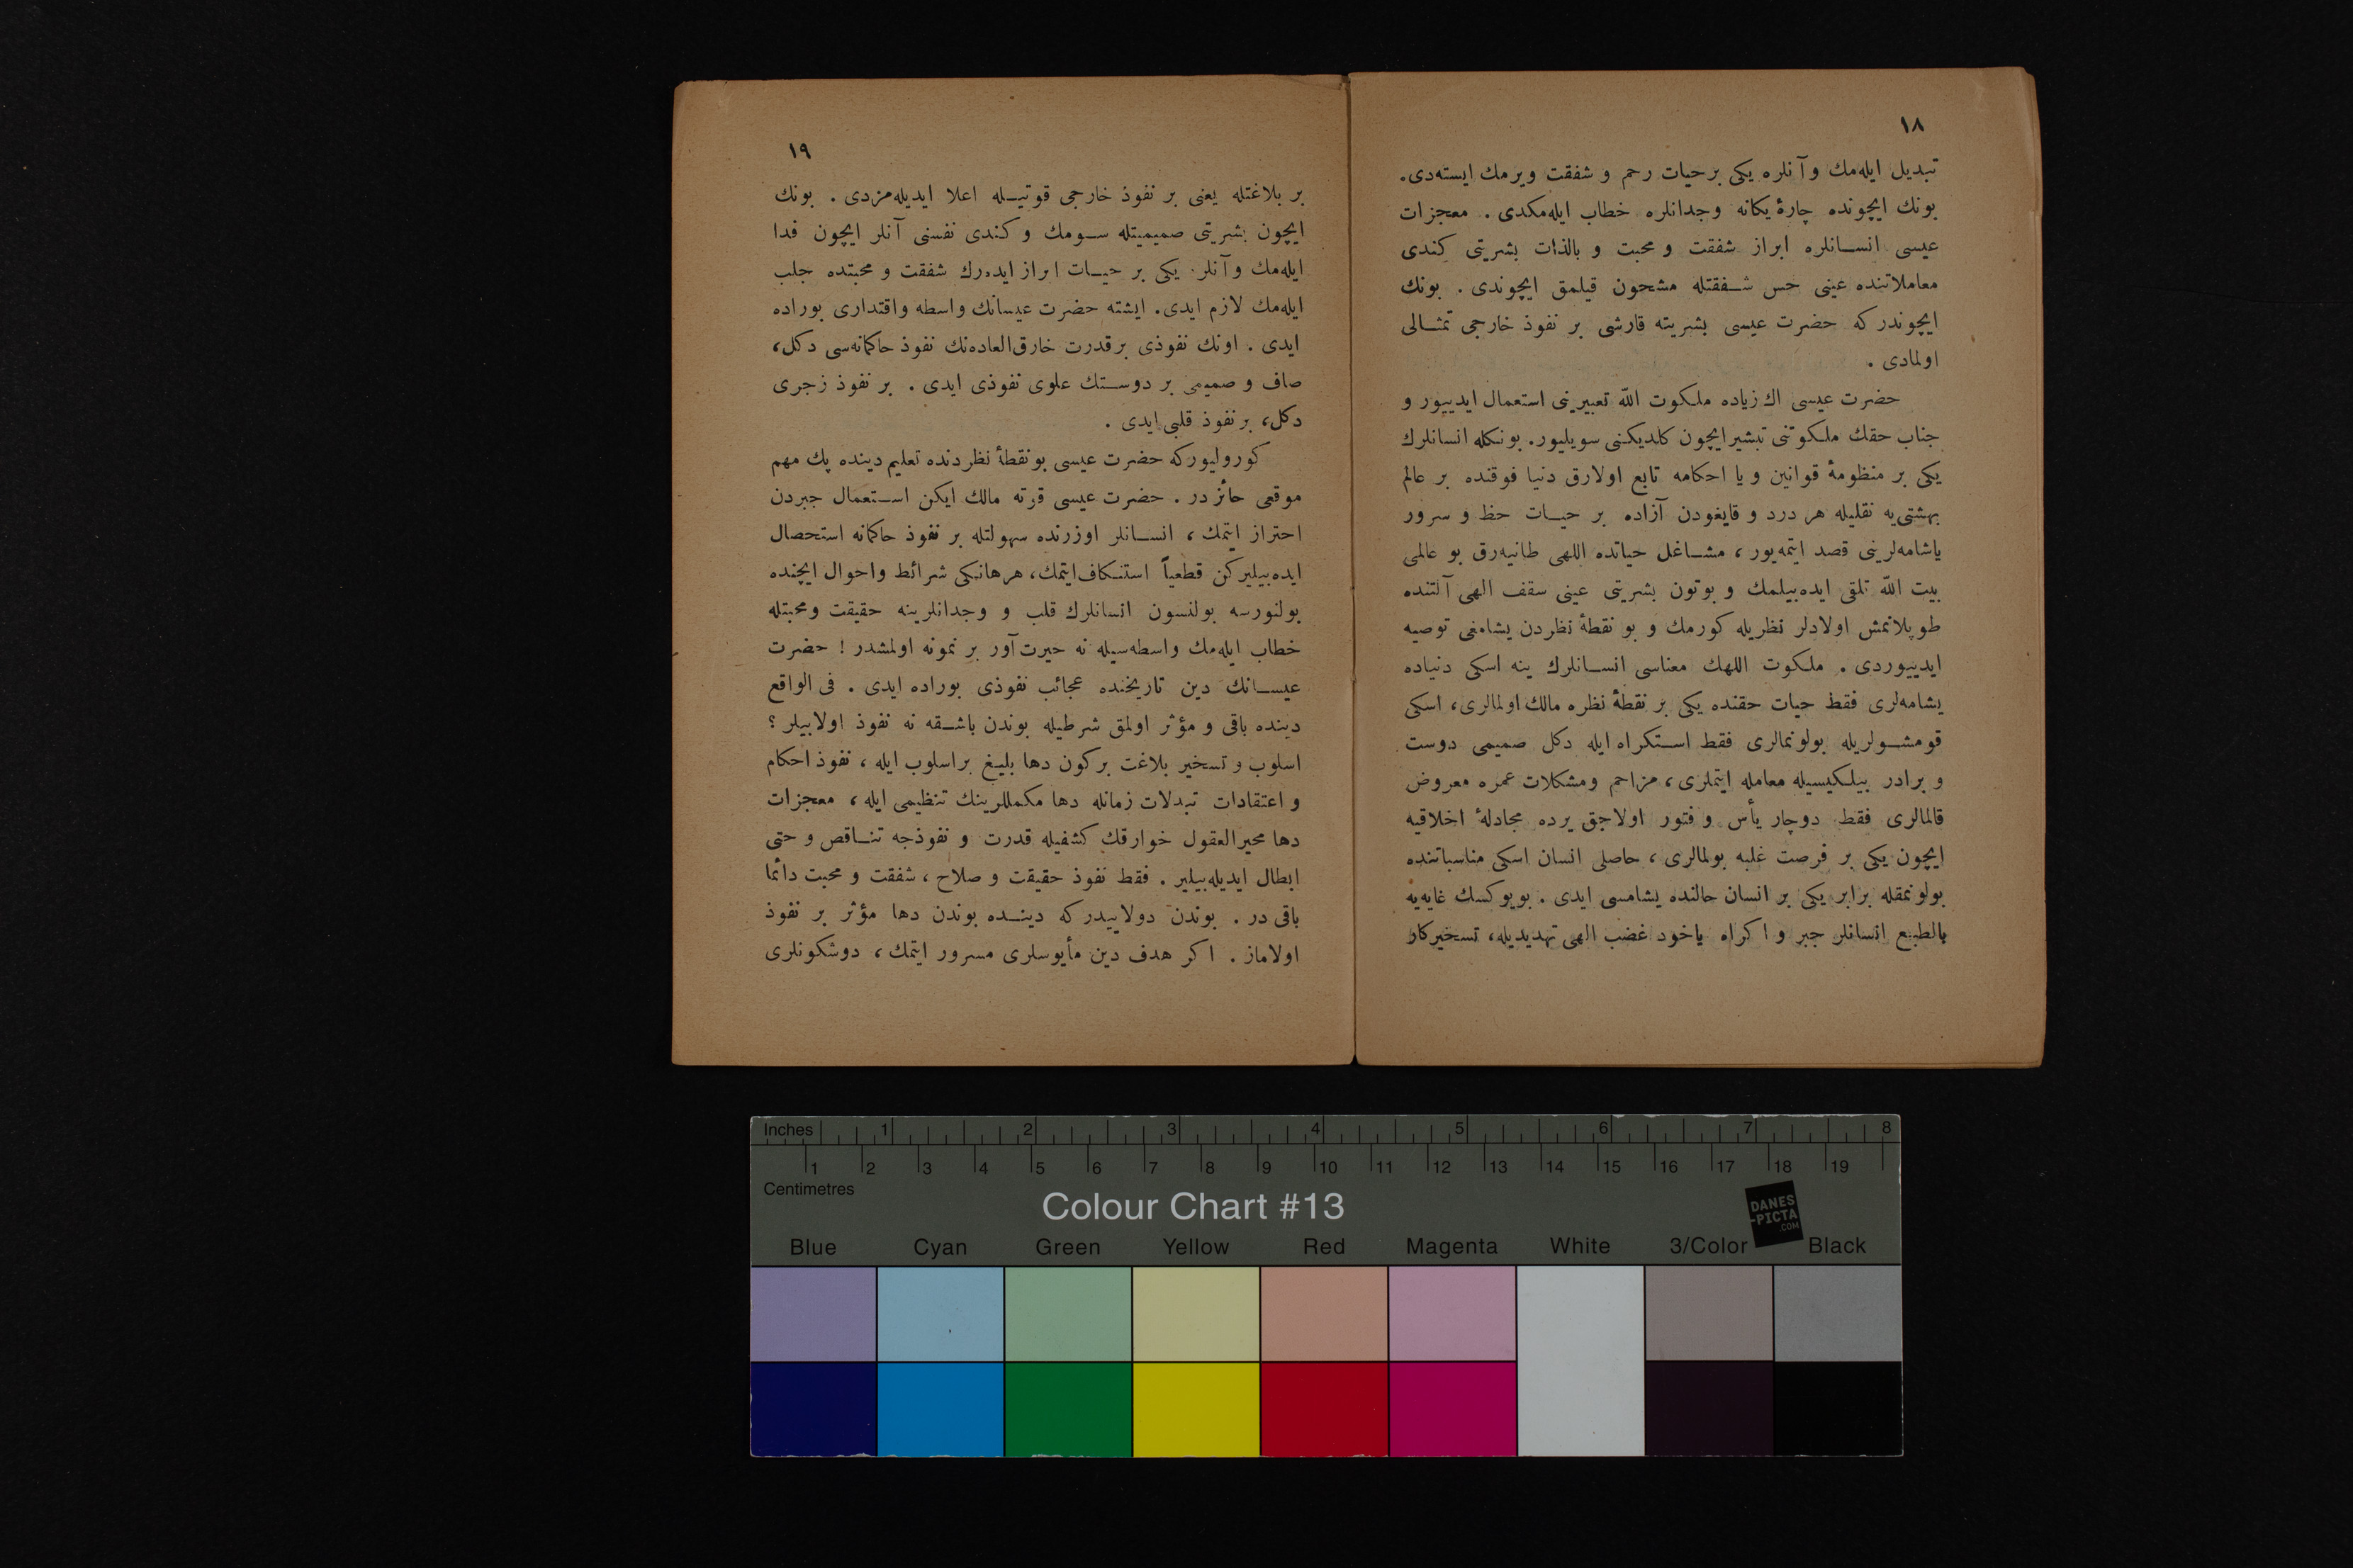 ١٨
تبديل ايله‌مك وآنلره يكى برحيات رحم و شفقت ويرمك ايسته‌دى.
بونك ايچونده چارهٔ يكانه وجدانلره خطاب ايله‌مكدى . معجزات
عيسى انسـانلره ابراز شفقت و محبت و بالذات بشريتى كندى
معاملاتنده عينى حس شـفقتله مشحون قيلمق ايچوندى . بونك
ايچوندركه حضرت عيسى بشريته قارشى بر نفوذ خارجى تمثـالى
اولمادى .
حضرت عيسى اك زياده ملكوت الله تعبيرينى استعمال ايدييور و
جناب حقك ملكوتنى تبشيرايچون كلديكنى سويليور. بونكله انسانلرك
يكى بر منظومهٔ قوانين و يا احكامه تابع اولارق دنيا فوقنده بر عالم
بهشتى‌يه نقليله هر درد و قايغودن آزاده بر حيـات حظ و سرور
ياشامه‌لرينى قصد ايتمه‌يور ، مشـاغل حياتده اللهى طانيه‌رق بو عالمى
بيت الله تلقى ايده‌بيلمك و بوتون بشريتى عينى سقف الهى آلتنده
طوپلانمش اولادلر نظريله كورمك و بو نقطهٔ نظردن يشامغى توصيه
ايدييوردى . ملكوت اللهك معناسى انسـانلرك ينه اسكى دنياده
يشامه‌لرى فقط حيات حقنده يكى بر نقطهٔ نظره مالك اولمالرى، اسكى
قومشـولريله بولونمالرى فقط اسـتكراه ايله دكل صميمى دوست
و برادر بيلـكيسيله معامله ايتملرى ، مزاحم ومشكلات عمره معروض
قالمالرى فقط دوچار يأس و فتور اولاجق يرده مجادلهٔ اخلاقيه
ايچون يكى بر فرصت غلبه بولمالرى ، حاصلى انسان اسكى مناسباتنده
بولونمقله برابر يكى بر انسان حالنده يشامسى ايدى . بويوكسك غايه‌يه
بالطبع انسانلر جبر و اكراه ياخود غضب الهى تهديديله، تسخيركار
١٩
بر بلاغتله يعنى بر نفوذ خارجى قوتيـله اعلا ايديله‌مزدى . بونك
ايچون بشريتى صميميتله سـومك و كندى نفسنى آنلر ايچون فدا
ايله‌مك وآنلر. يكى بر حيـات ابراز ايده‌رك شفقت و محبتده جلب
ايله‌مك لازم ايدى. ايشته حضرت عيسانك واسطه واقتدارى بوراده
ايدى . اونك نفوذى برقدرت خارق‌العاده‌نك نفوذ حاكمانه‌سى دكل،
صاف و صميمى بر دوسـتك علوى نفوذى ايدى . بر نفوذ زجرى
دكل، بر نفوذ قلبى ايدى .
كوروليوركه حضرت عيسى بونقطهٔ نظردنده تعليم دينده پك مهم
موقعى حائزدر . حضرت عيسى قوته مالك ايكن اسـتعمال جبردن
احتراز ايتمك ، انسـانلر اوزرنده سهولتله بر نفوذ حاكمانه استحصال
ايده‌بيليركن قطعياً استنـكاف‌ايتمك، هرهانكى شرائط واحوال ايچنده
بولنورسه بولنسون انسانلرك قلب و وجدانلرينه حقيقت ومحبتله
خطاب ايله‌مك واسطه‌سيله نه حيرت‌آور بر نمونه اولمشدر ! حضرت
عيسـانك دين تاريخنده عجائب نفوذى بوراده ايدى . فى الواقع
دينده باقى و مؤثر اولمق شرطيله بوندن باشـقه نه نفوذ اولابيلر ؟
اسلوب و تسخير بلاغت بركون دها بليغ براسلوب ايله ، نفوذ احكام
و اعتقادات تبدلات زمانله دها مكمللرينك تنظيمى ايله ، معجزات
دها محيرالعقول خوارقك كشفيله قدرت و نفوذجه تنـاقص و حتى
ابطال ايديله‌بيلير . فقط نفوذ حقيقت و صلاح ، شفقت و محبت دائما
باقى در . بوندن دولاييدركه دينـده بوندن دها مؤثر بر نفوذ
اولاماز . اكر هدف دين مأيوسلرى مسرور ايتمك ، دوشكونلرى
Inches 1 2 3 4 5 6 7 8
1 2 3 4 5 6 7 8 9 10 11 12 13 14 15 16 17 18 19
Centimetres
Colour Chart #13
DANES
-PICTA
.COM
Blue Cyan Green Yellow Red Magenta White 3/Color Black